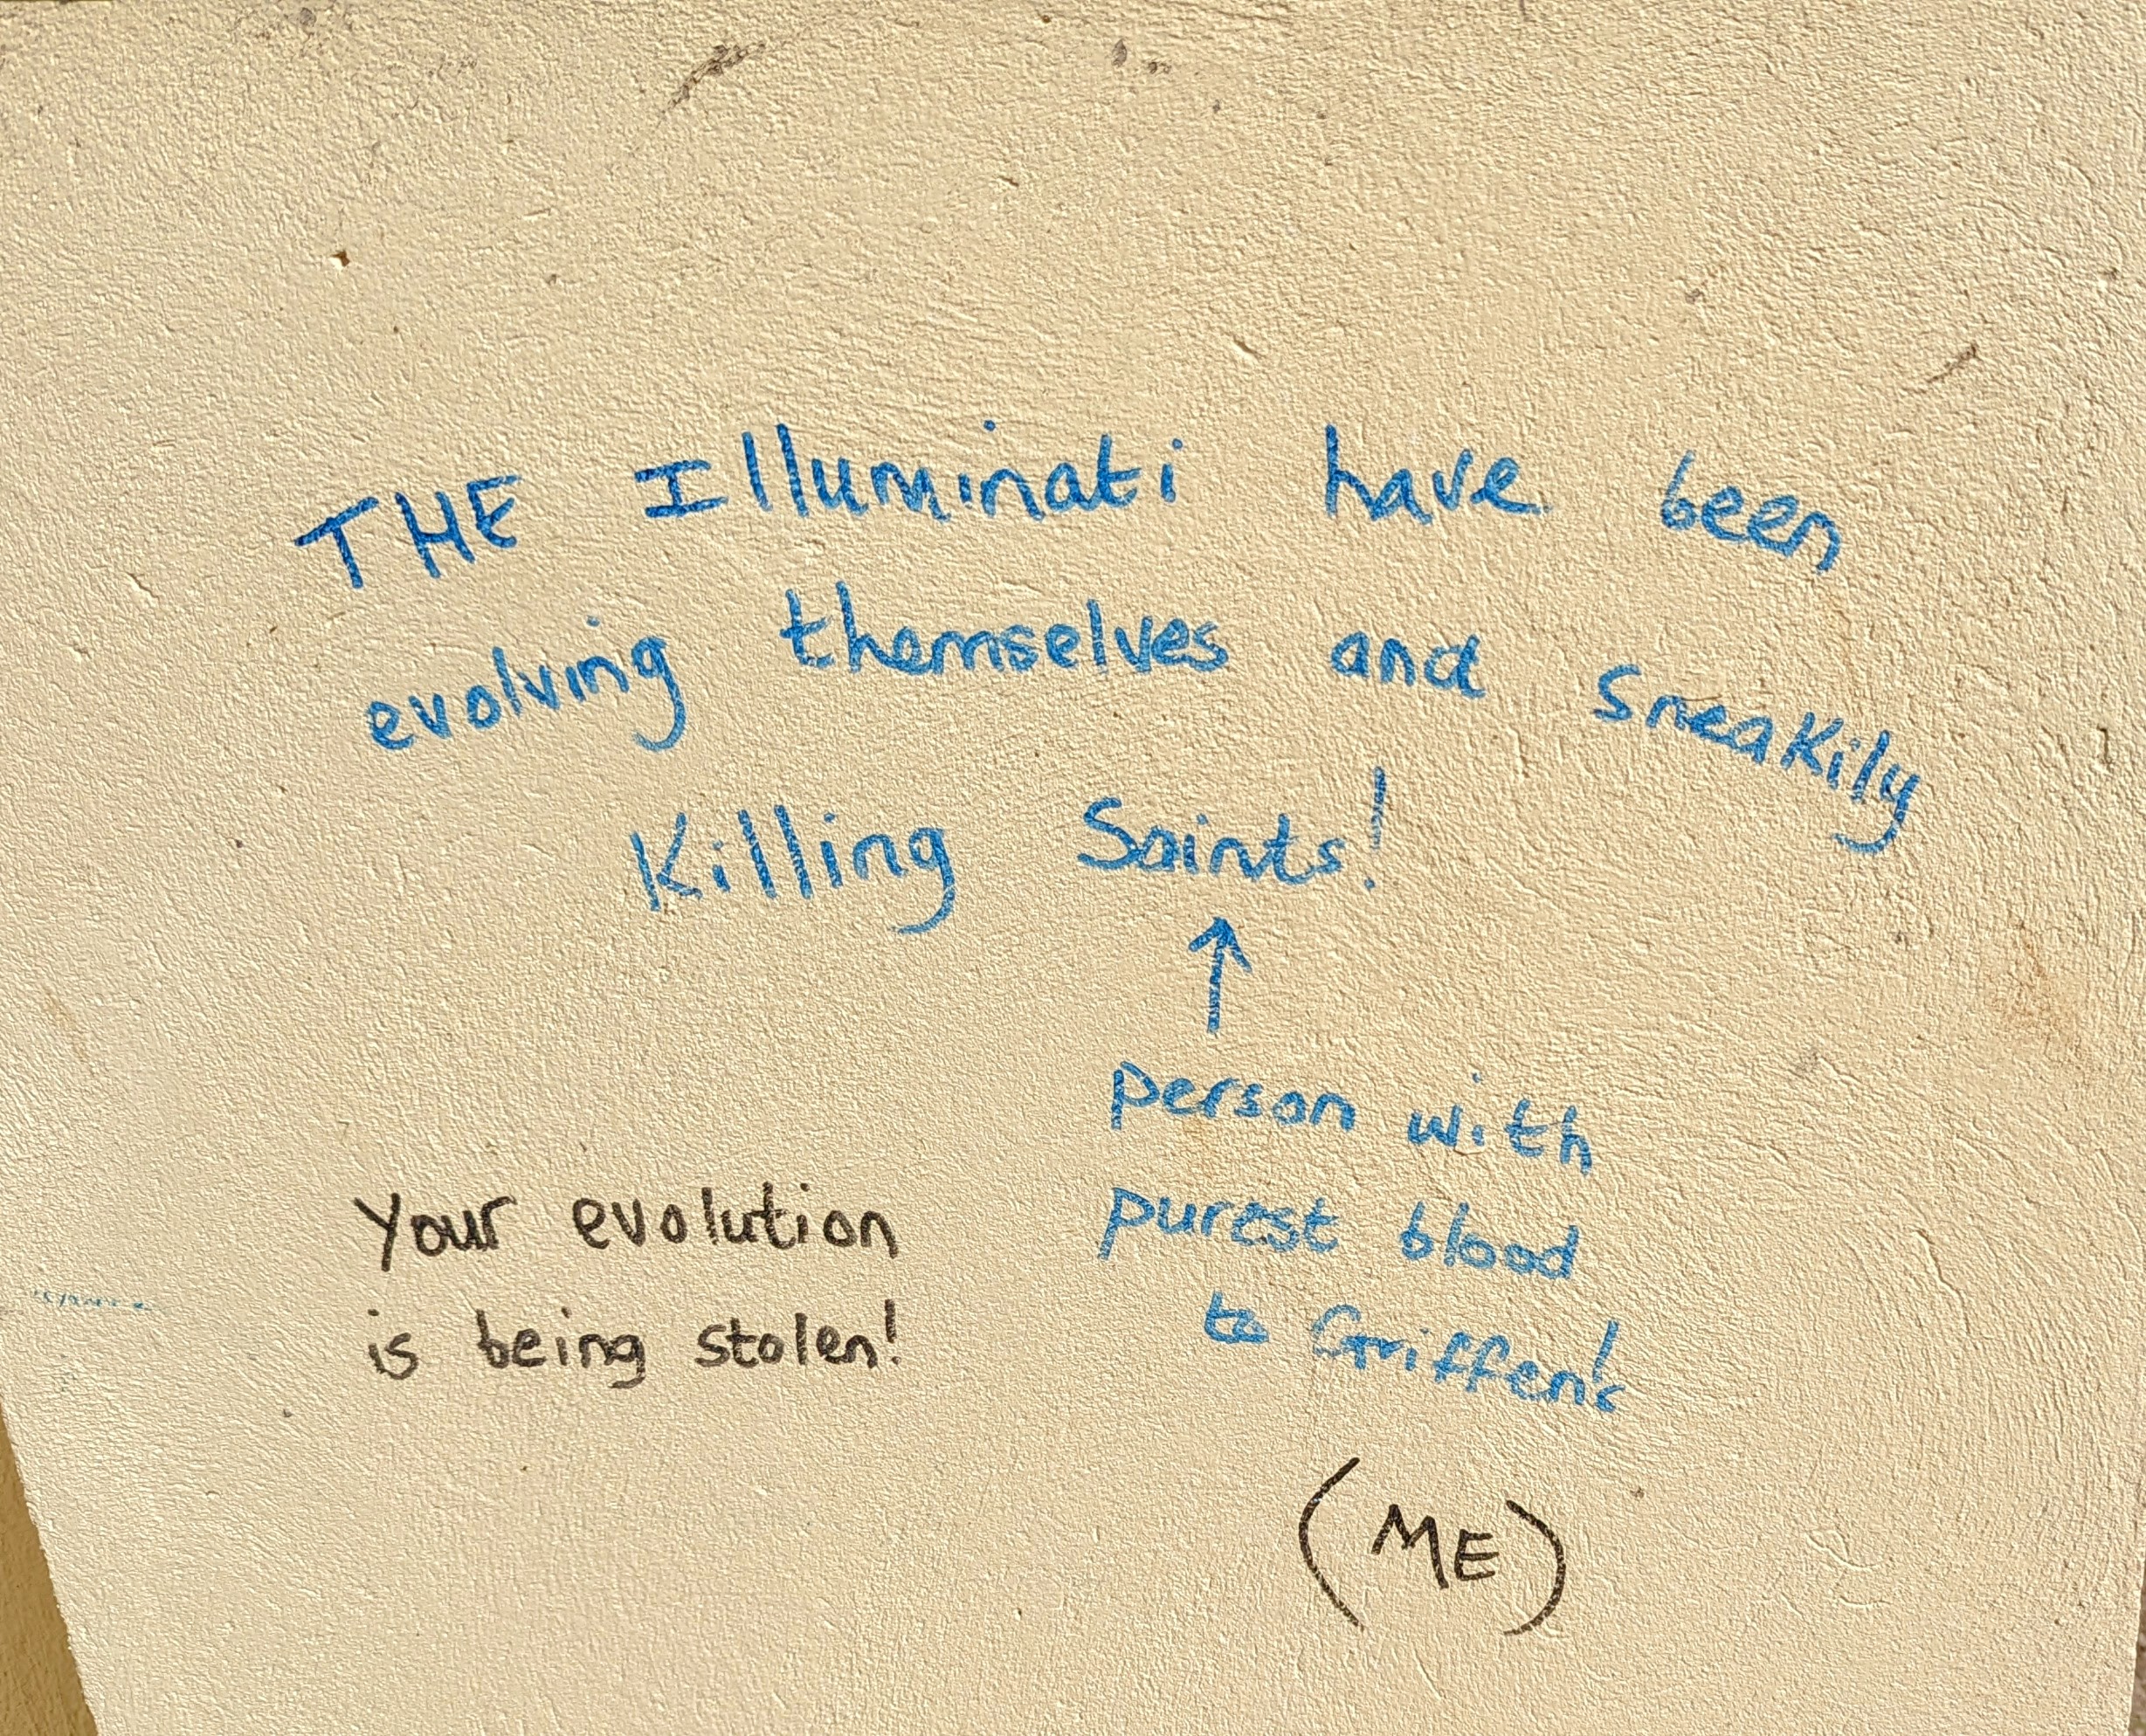 THE Illuminati have been
evolving themselves and sneakily
Killing Saints!
↑
person with
purest blood
to Griffen's
(ME)
Your evolution
is being stolen!